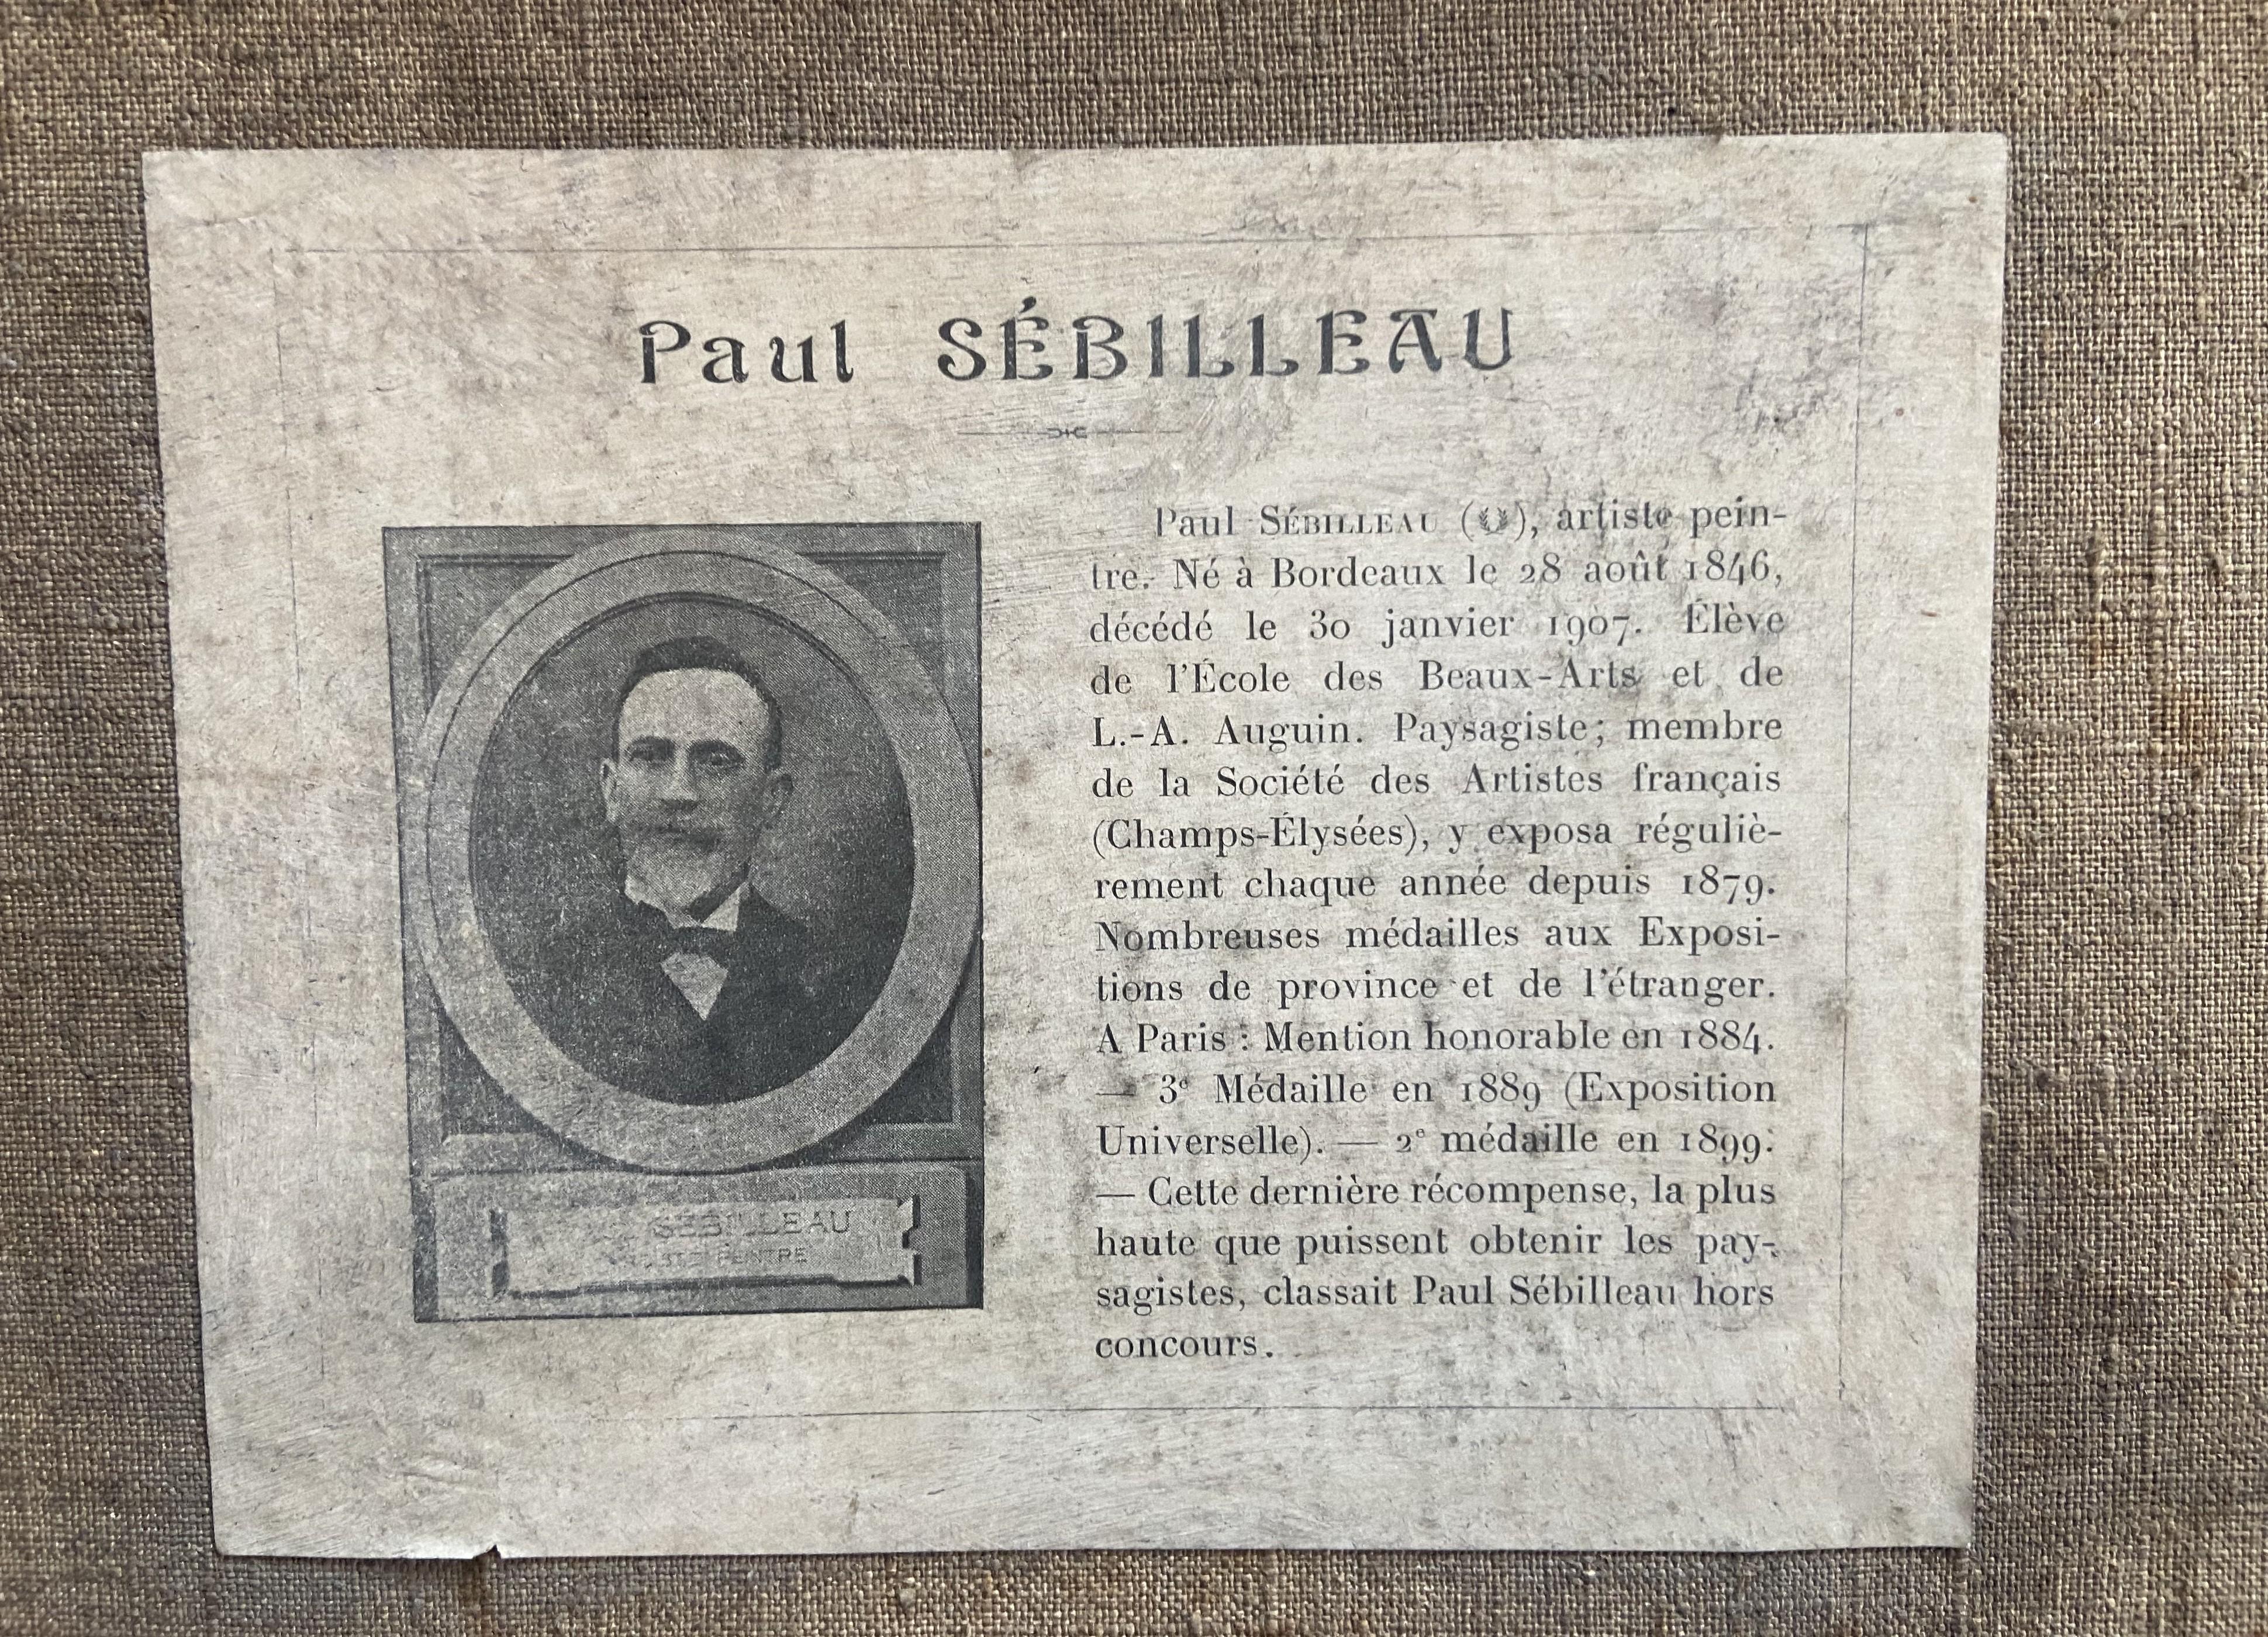 Paul SÉBILLEAU
SÉBILLEAU
PEINTRE
Paul SÉBILLEAU (), artiste pein-
tre. Né à Bordeaux le 28 août 1846,
décédé le 30 janvier 1907. Élève
de l'École des Beaux-Arts et de
L.-A. Auguin. Paysagiste; membre
de la Société des Artistes français
(Champs-Élysées), y exposa réguliè-
rement chaque année depuis 1879.
Nombreuses médailles aux Exposi-
tions de province et de l'étranger.
A Paris : Mention honorable en 1884.
— 3e Médaille en 1889 (Exposition
Universelle). — 2e médaille en 1899.
— Cette dernière récompense, la plus
haute que puissent obtenir les pay-
sagistes, classait Paul Sébilleau hors
concours.